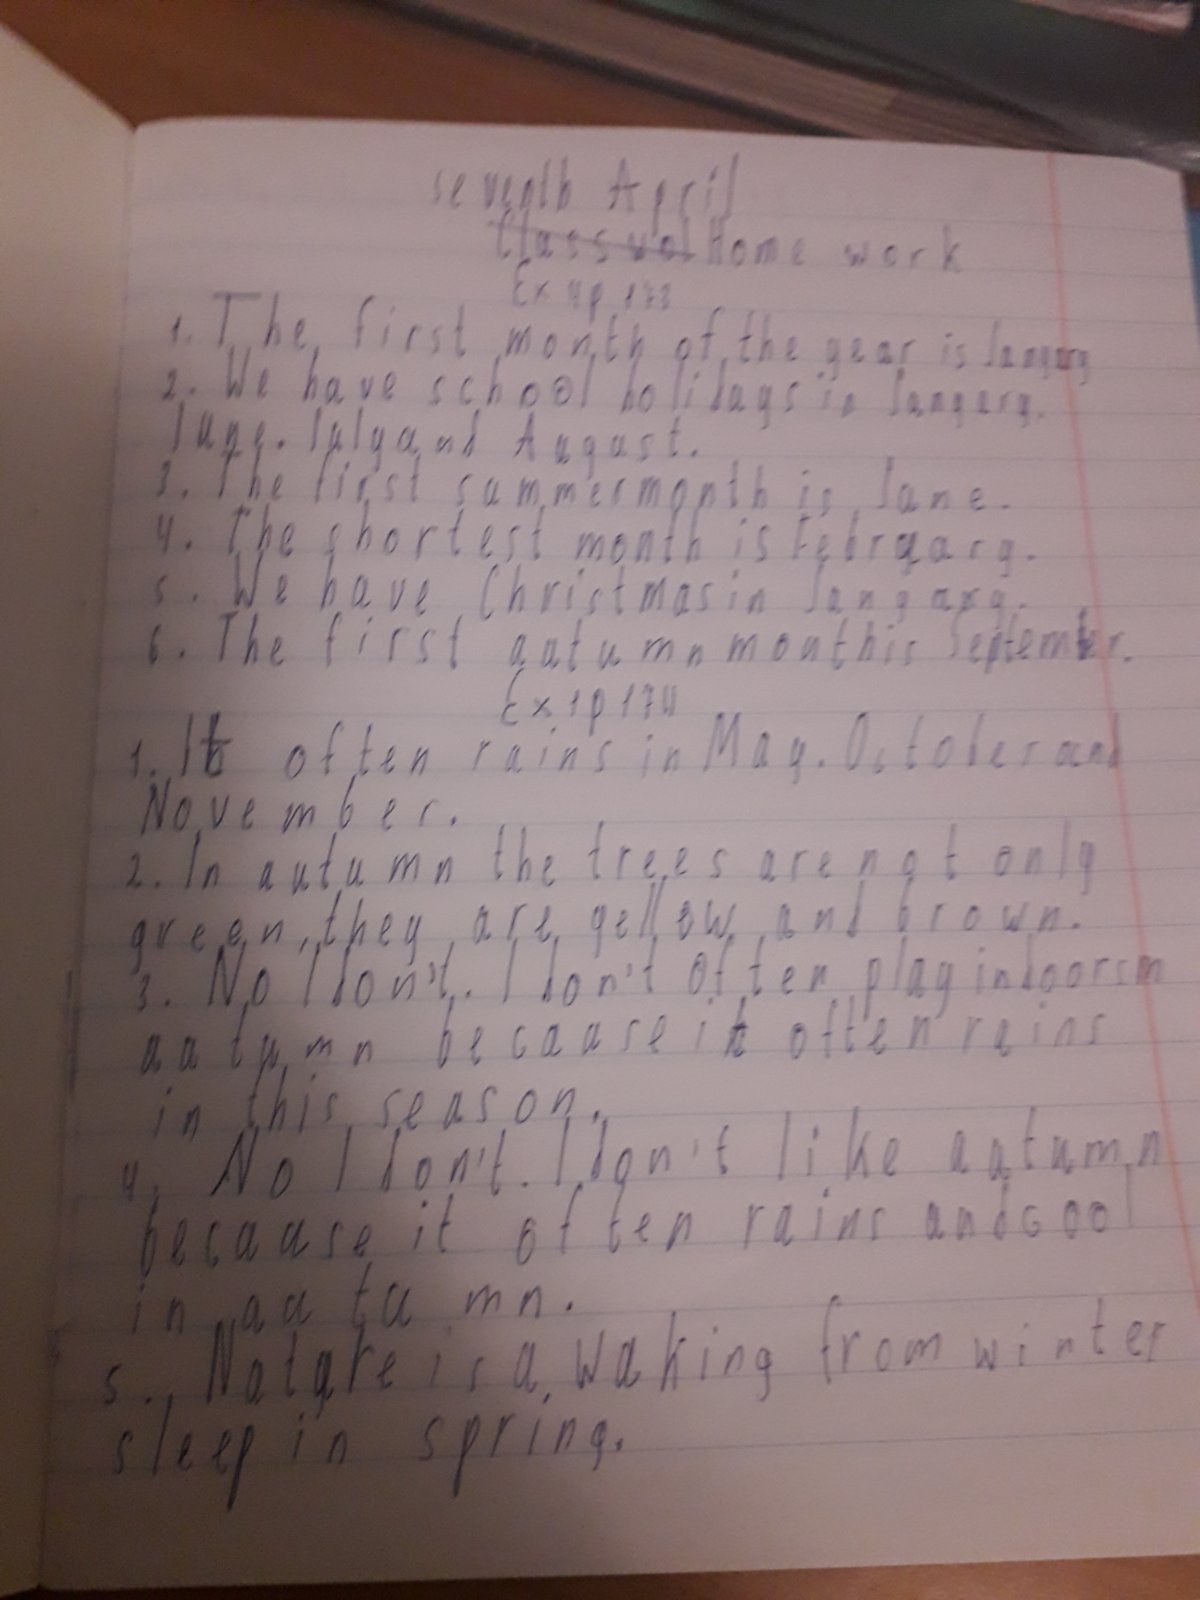 seventh April
Classwo Home work
Ex 4 p 173
1. The first month of the year is January
2. We have school holidays in January.
June. July and August.
3. The first summer month is June.
4. The shortest month is February.
5. We have Christmas in January.
6. The first autumn month is September.
Ex 1 p 174
1. It often rains in May. October and
November.
2. In autumn the trees are not only
green, they are yellow and brown.
3. No I don't. I don't often play indoors in
autumn because it often rains
in this season.
4. No I don't. I don't like autumn
because it often rains and cool
in autumn.
5. Nature is a waking from winter
sleep in spring.